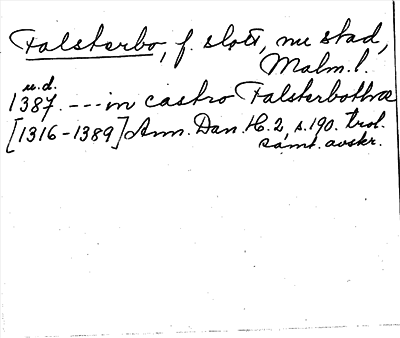 Falsterbo, f. slott, nu stad,
Malm.l.
u.d.
1387. --- in castro Falsterbothæ
[1316-1389] Ann. Dan. H. 2, s. 190. trol.
samt. avskr.